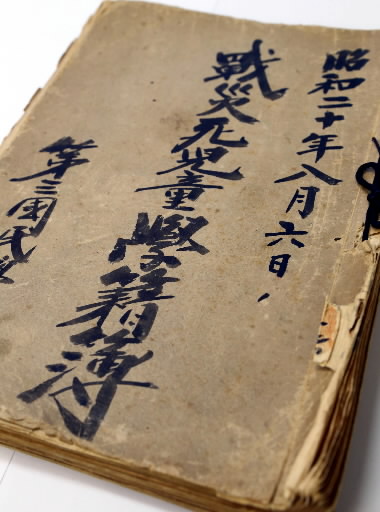 昭和二十年八月六日、
戦災死児童學籍簿
第三國民